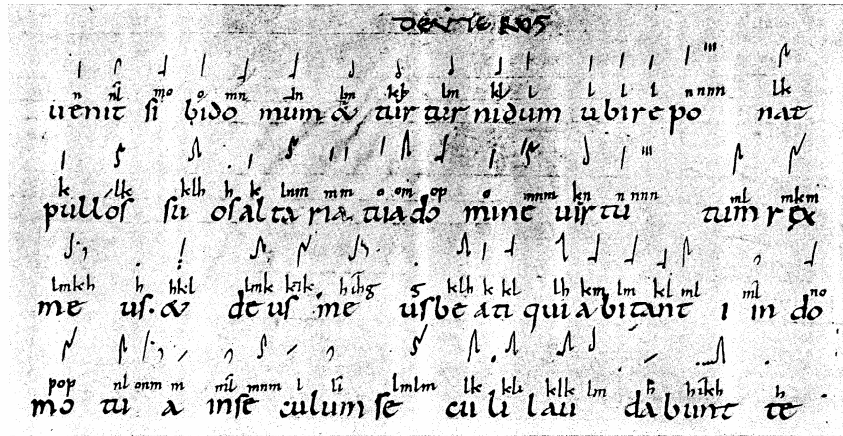 deute ros
n nl mo o mn ln lm kh lm kl l l l l n nnn lk
uenit si bido mum & tur tur nidum ubi repo nat
k lk klh h k lnm mm o om op o mnm kn n nnn ml mkm
pullos su os alta ria tua do mine uirtu tum rex
lmkh h hkl lmk klk h ihg g klh k kl lh km lm kl ml ml no
me us. & de us me us be ati qui abitant i in do
pop nl onm m ml mnm l li lmlm lk kli klk lm h hikh h
mo tu a inse culum se cu li lau dabunt te